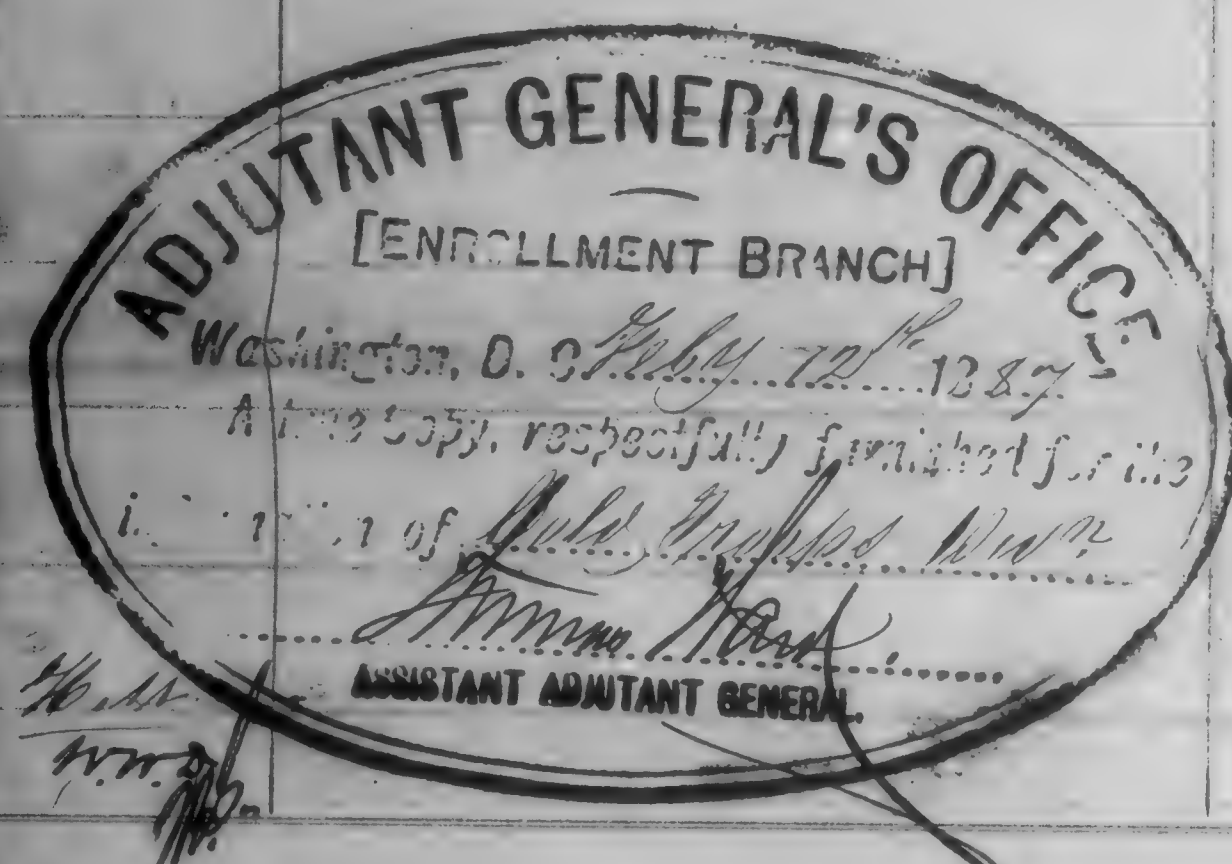 ADJUTANT GENERAL'S OFFICE,
[ENROLLMENT BRANCH]
Washington, D. C. Feby 12th 1887.
A true copy, respectfully furnished for the
information of Cold. Troops Divn
ASSISTANT ADJUTANT GENERAL.